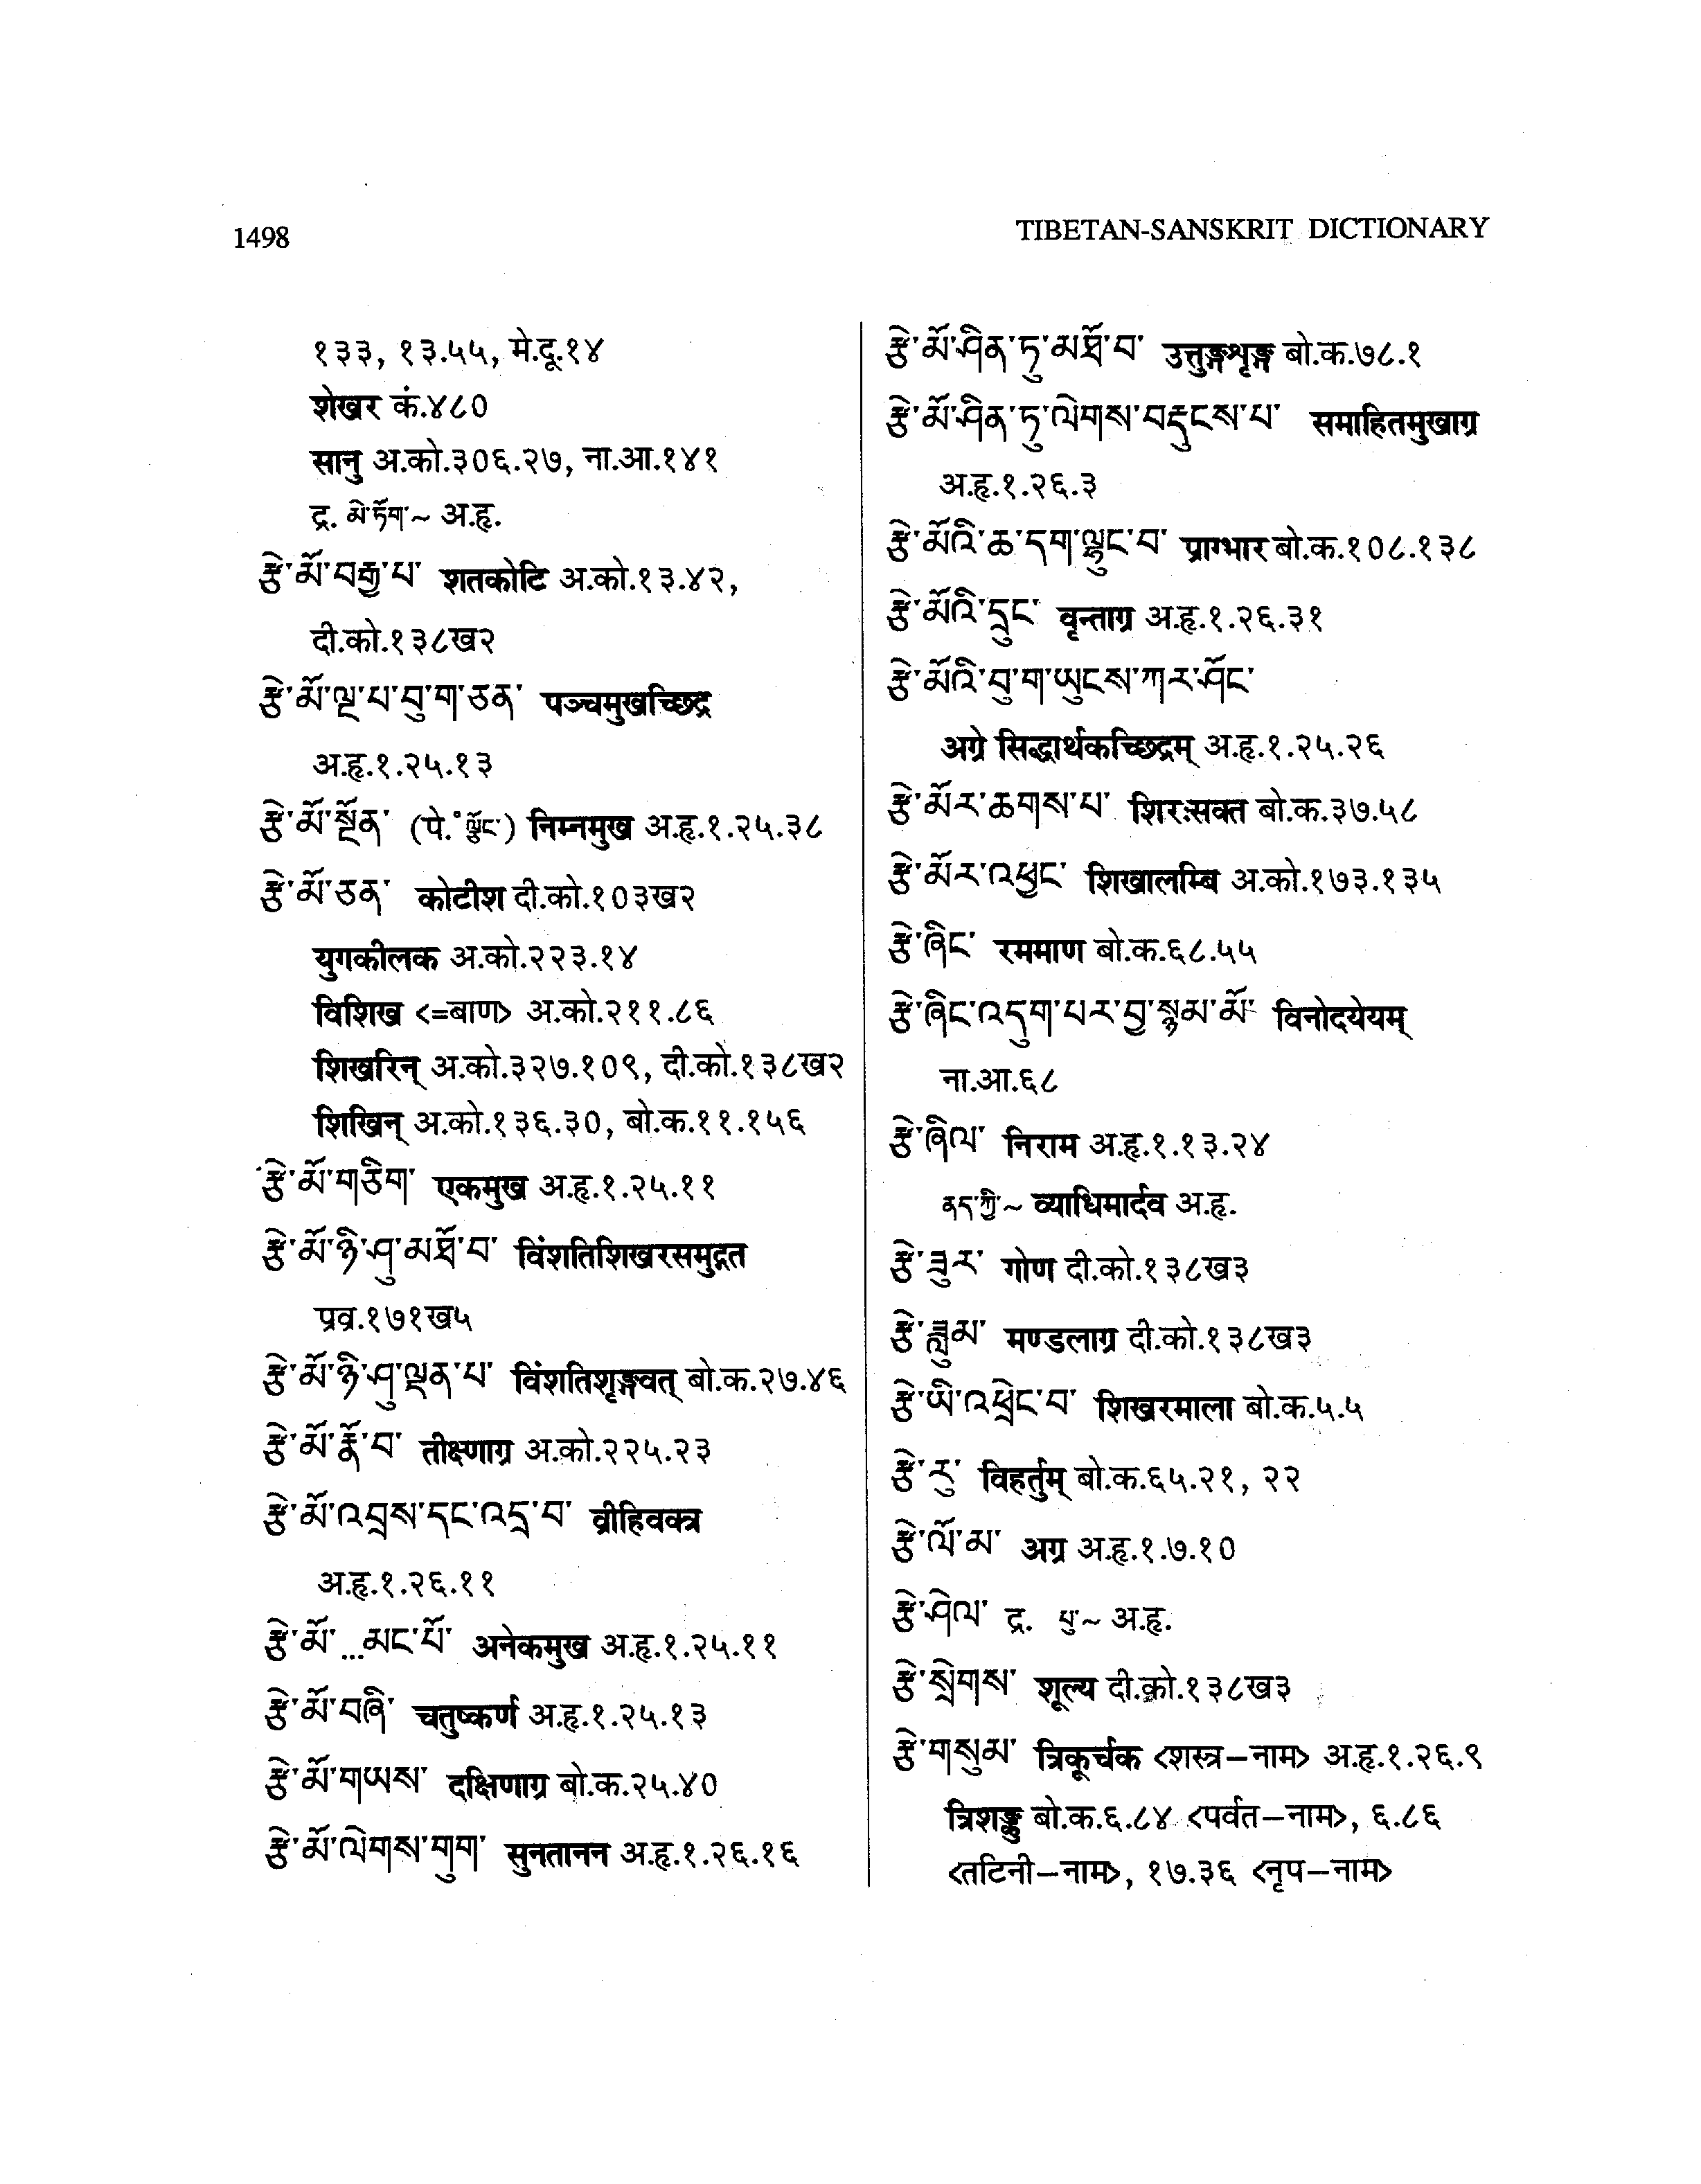 1498
TIBETAN-SANSKRIT DICTIONARY
१३३, १३.५५, मे.दू.१४
शेखर कं.४८०
सानु अ.को.३०६.२७, ना.आ.१४१
द्र. མེ་ཏོག་~ अ.हृ.
རྩེ་མོ་བརྒྱ་པ་ शतकोटि अ.को.१३.४२,
दी.को.१३८ख२
རྩེ་མོ་ལྔ་པ་བུ་ག་ཅན་ पञ्चमुखच्छिद्र
अ.हृ.१.२५.१३
རྩེ་མོ་སྔོན་ (पे.° ) निम्नमुख अ.हृ.१.२५.३८
རྩེ་མོ་ཅན་ कोटीश दी.को.१०३ख२
युगकीलक अ.को.२२३.१४
विशिख <=बाण> अ.को.२११.८६
शिखरिन् अ.को.३२७.१०९, दी.को.१३८ख२
शिखिन् अ.को.१३६.३०, बो.क.११.१५६
རྩེ་མོ་གཅིག་ एकमुख अ.हृ.१.२५.११
རྩེ་མོ་ཉི་ཤུ་མཐོ་བ་ विंशतिशिखरसमुद्गत
प्रव्र.१७१ख५
རྩེ་མོ་ཉི་ཤུ་ལྡན་པ་ विंशतिशृङ्गवत् बो.क.२७.४६
རྩེ་མོ་རྣོ་བ་ तीक्ष्णाग्र अ.को.२२५.२३
རྩེ་མོ་འབྲས་དང་འདྲ་བ་ व्रीहिवक्त्र
अ.हृ.१.२६.११
རྩེ་མོ་...མང་པོ་ अनेकमुख अ.हृ.१.२५.११
རྩེ་མོ་བཞི་ चतुष्कर्ण अ.हृ.१.२५.१३
རྩེ་མོ་གཡས་ दक्षिणाग्र बो.क.२५.४०
རྩེ་མོ་ལེགས་གུག་ सुनतानन अ.हृ.१.२६.१६
རྩེ་མོ་ཤིན་ཏུ་མཐོ་བ་ उत्तुङ्गशृङ्ग बो.क.७८.१
རྩེ་མོ་ཤིན་ཏུ་ལེགས་བརྡུངས་པ་ समाहितमुखाग्र
अ.हृ.१.२६.३
རྩེ་མོའི་ཆ་དག་ལྷུང་བ་ प्राग्भार बो.क.१०८.१३८
རྩེ་མོའི་དྲུང་ वृन्ताग्र अ.हृ.१.२६.३१
རྩེ་མོའི་བུ་ག་ཡུངས་ཀར་ཤོང་
अग्रे सिद्धार्थकच्छिद्रम् अ.हृ.१.२५.२६
རྩེ་མོར་ཆགས་པ་ शिरःसक्त बो.क.३७.५८
རྩེ་མོར་འཕྱང་ शिखालम्बि अ.को.१७३.१३५
རྩེ་ཞིང་ रममाण बो.क.६८.५५
རྩེ་ཞིང་འདུག་པར་བྱ་སྙམ་མོ་ विनोदयेयम्
ना.आ.६८
རྩེ་ཞིལ་ निराम अ.हृ.१.१३.२४
ནད་ཀྱི་~ व्याधिमार्दव अ.हृ.
རྩེ་ཟུར་ गोण दी.को.१३८ख३
རྩེ་ཟླུམ་ मण्डलाग्र दी.को.१३८ख३
རྩེ་ཡི་འཕྲེང་བ་ शिखरमाला बो.क.५.५
རྩེ་རུ་ विहर्तुम् बो.क.६५.२१, २२
རྩེ་ལོ་མ་ अग्र अ.हृ.१.७.१०
རྩེ་ཤེལ་ द्र. པུ་~ अ.हृ.
རྩེ་སྲེགས་ शूल्य दी.को.१३८ख३
རྩེ་གསུམ་ त्रिकूर्चक <शस्त्र–नाम> अ.हृ.१.२६.९
त्रिशङ्कु बो.क.६.८४ <पर्वत–नाम>, ६.८६
<तटिनी–नाम>, १७.३६ <नृप–नाम>